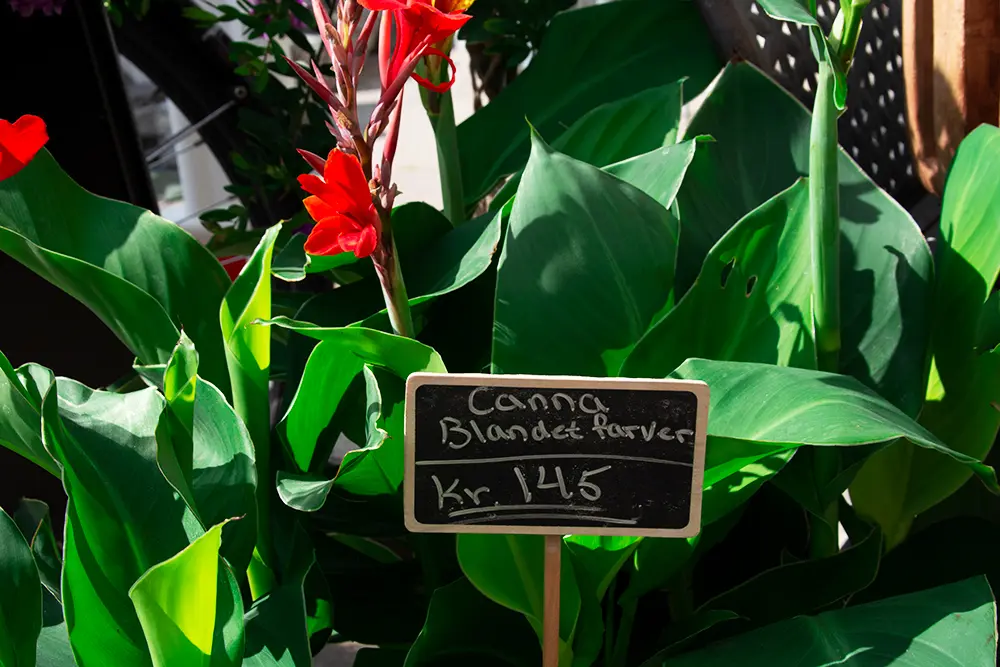 Canna
Blandet farver
Kr. 145